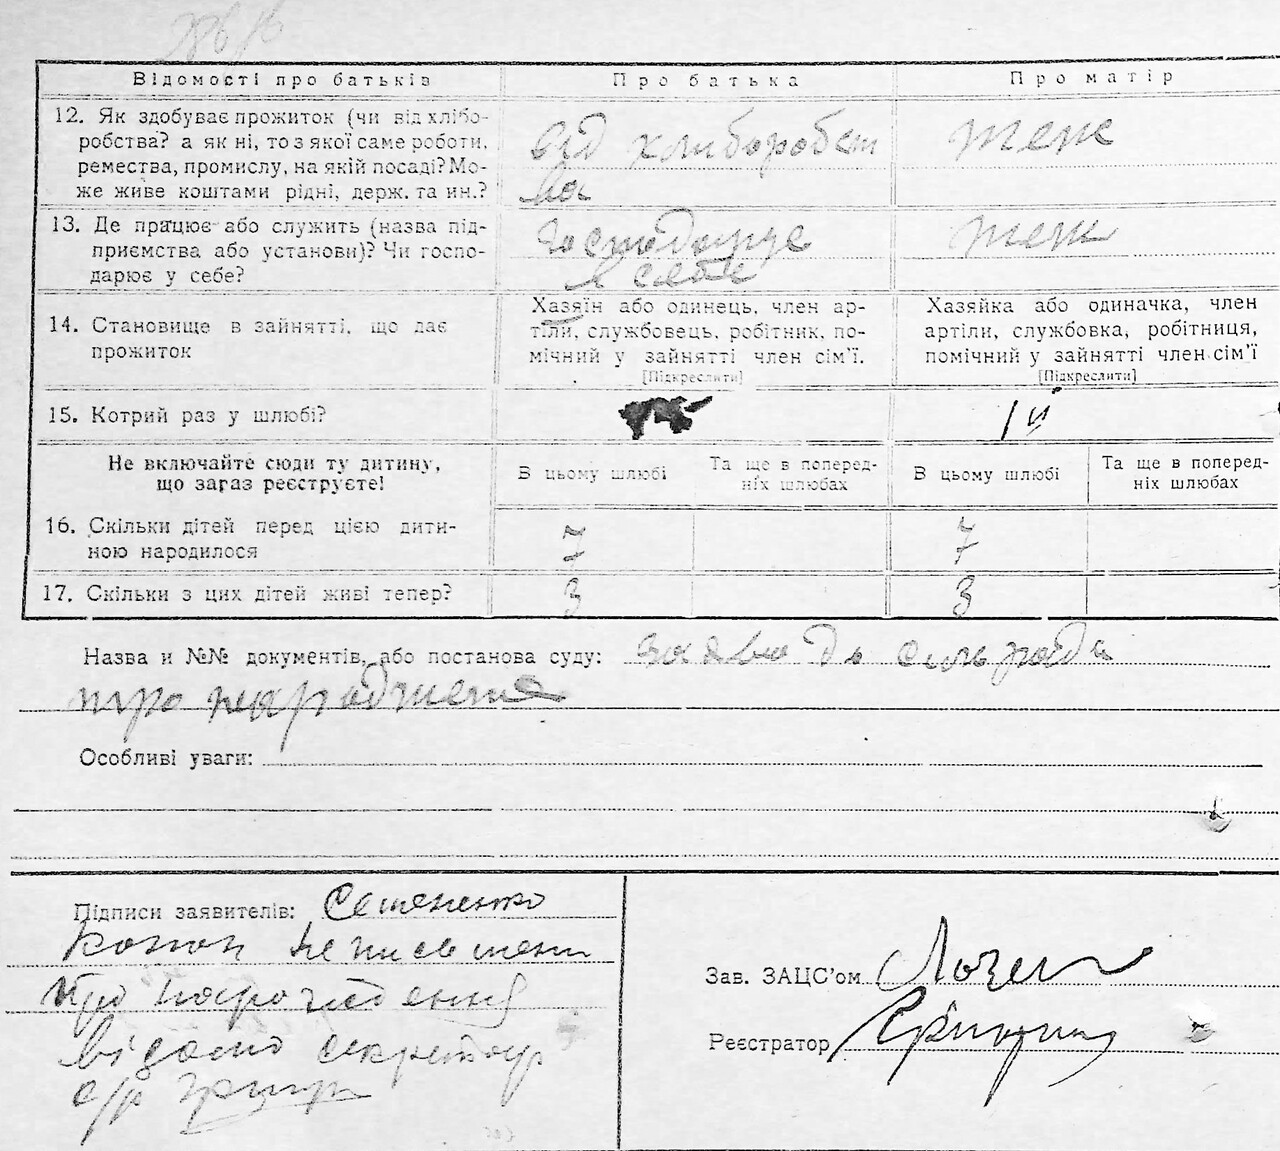 Відомості про батьків Про батька Про матір
12. Як здобуває прожиток (чи від хлібо-
робства? а як ні, то з якої саме роботи,
ремества, промислу, на якій посаді? Мо-
же живе коштами рідні, держ. та ин.?
від хлиборобст теж
ва
13. Де працює або служить (назва під-
приємства або установи)? Чи госпо-
дарює у себе?
Господарує теж
в себе
14. Становище в зайнятті, що дає
прожиток
Хазяїн або одинець, член ар-
тіли, службовець, робітник, по-
мічний у зайнятті член сім'ї.
[Підкреслити]
Хазяйка або одиначка, член
артіли, службовка, робітниця,
помічний у зайнятті член сім'ї
[Підкреслити]
15. Котрий раз у шлюбі? 1й
Не включайте сюди ту дитину,
що зараз реєструєте!
В цьому шлюбі
Та ще в поперед-
ніх шлюбах
В цьому шлюбі
Та ще в поперед-
ніх шлюбах
16. Скільки дітей перед цією дити-
ною народилося
7 7
17. Скільки з цих дітей живі тепер? 3 3
Назва и №№ документів, або постанова суду: заява до сильради
про народження
Особливі уваги:
Підписи заявителів: Семененко
неписьмени
про народження
відомо секретар
с/р
Зав. ЗАЦС'ом
Реєстратор